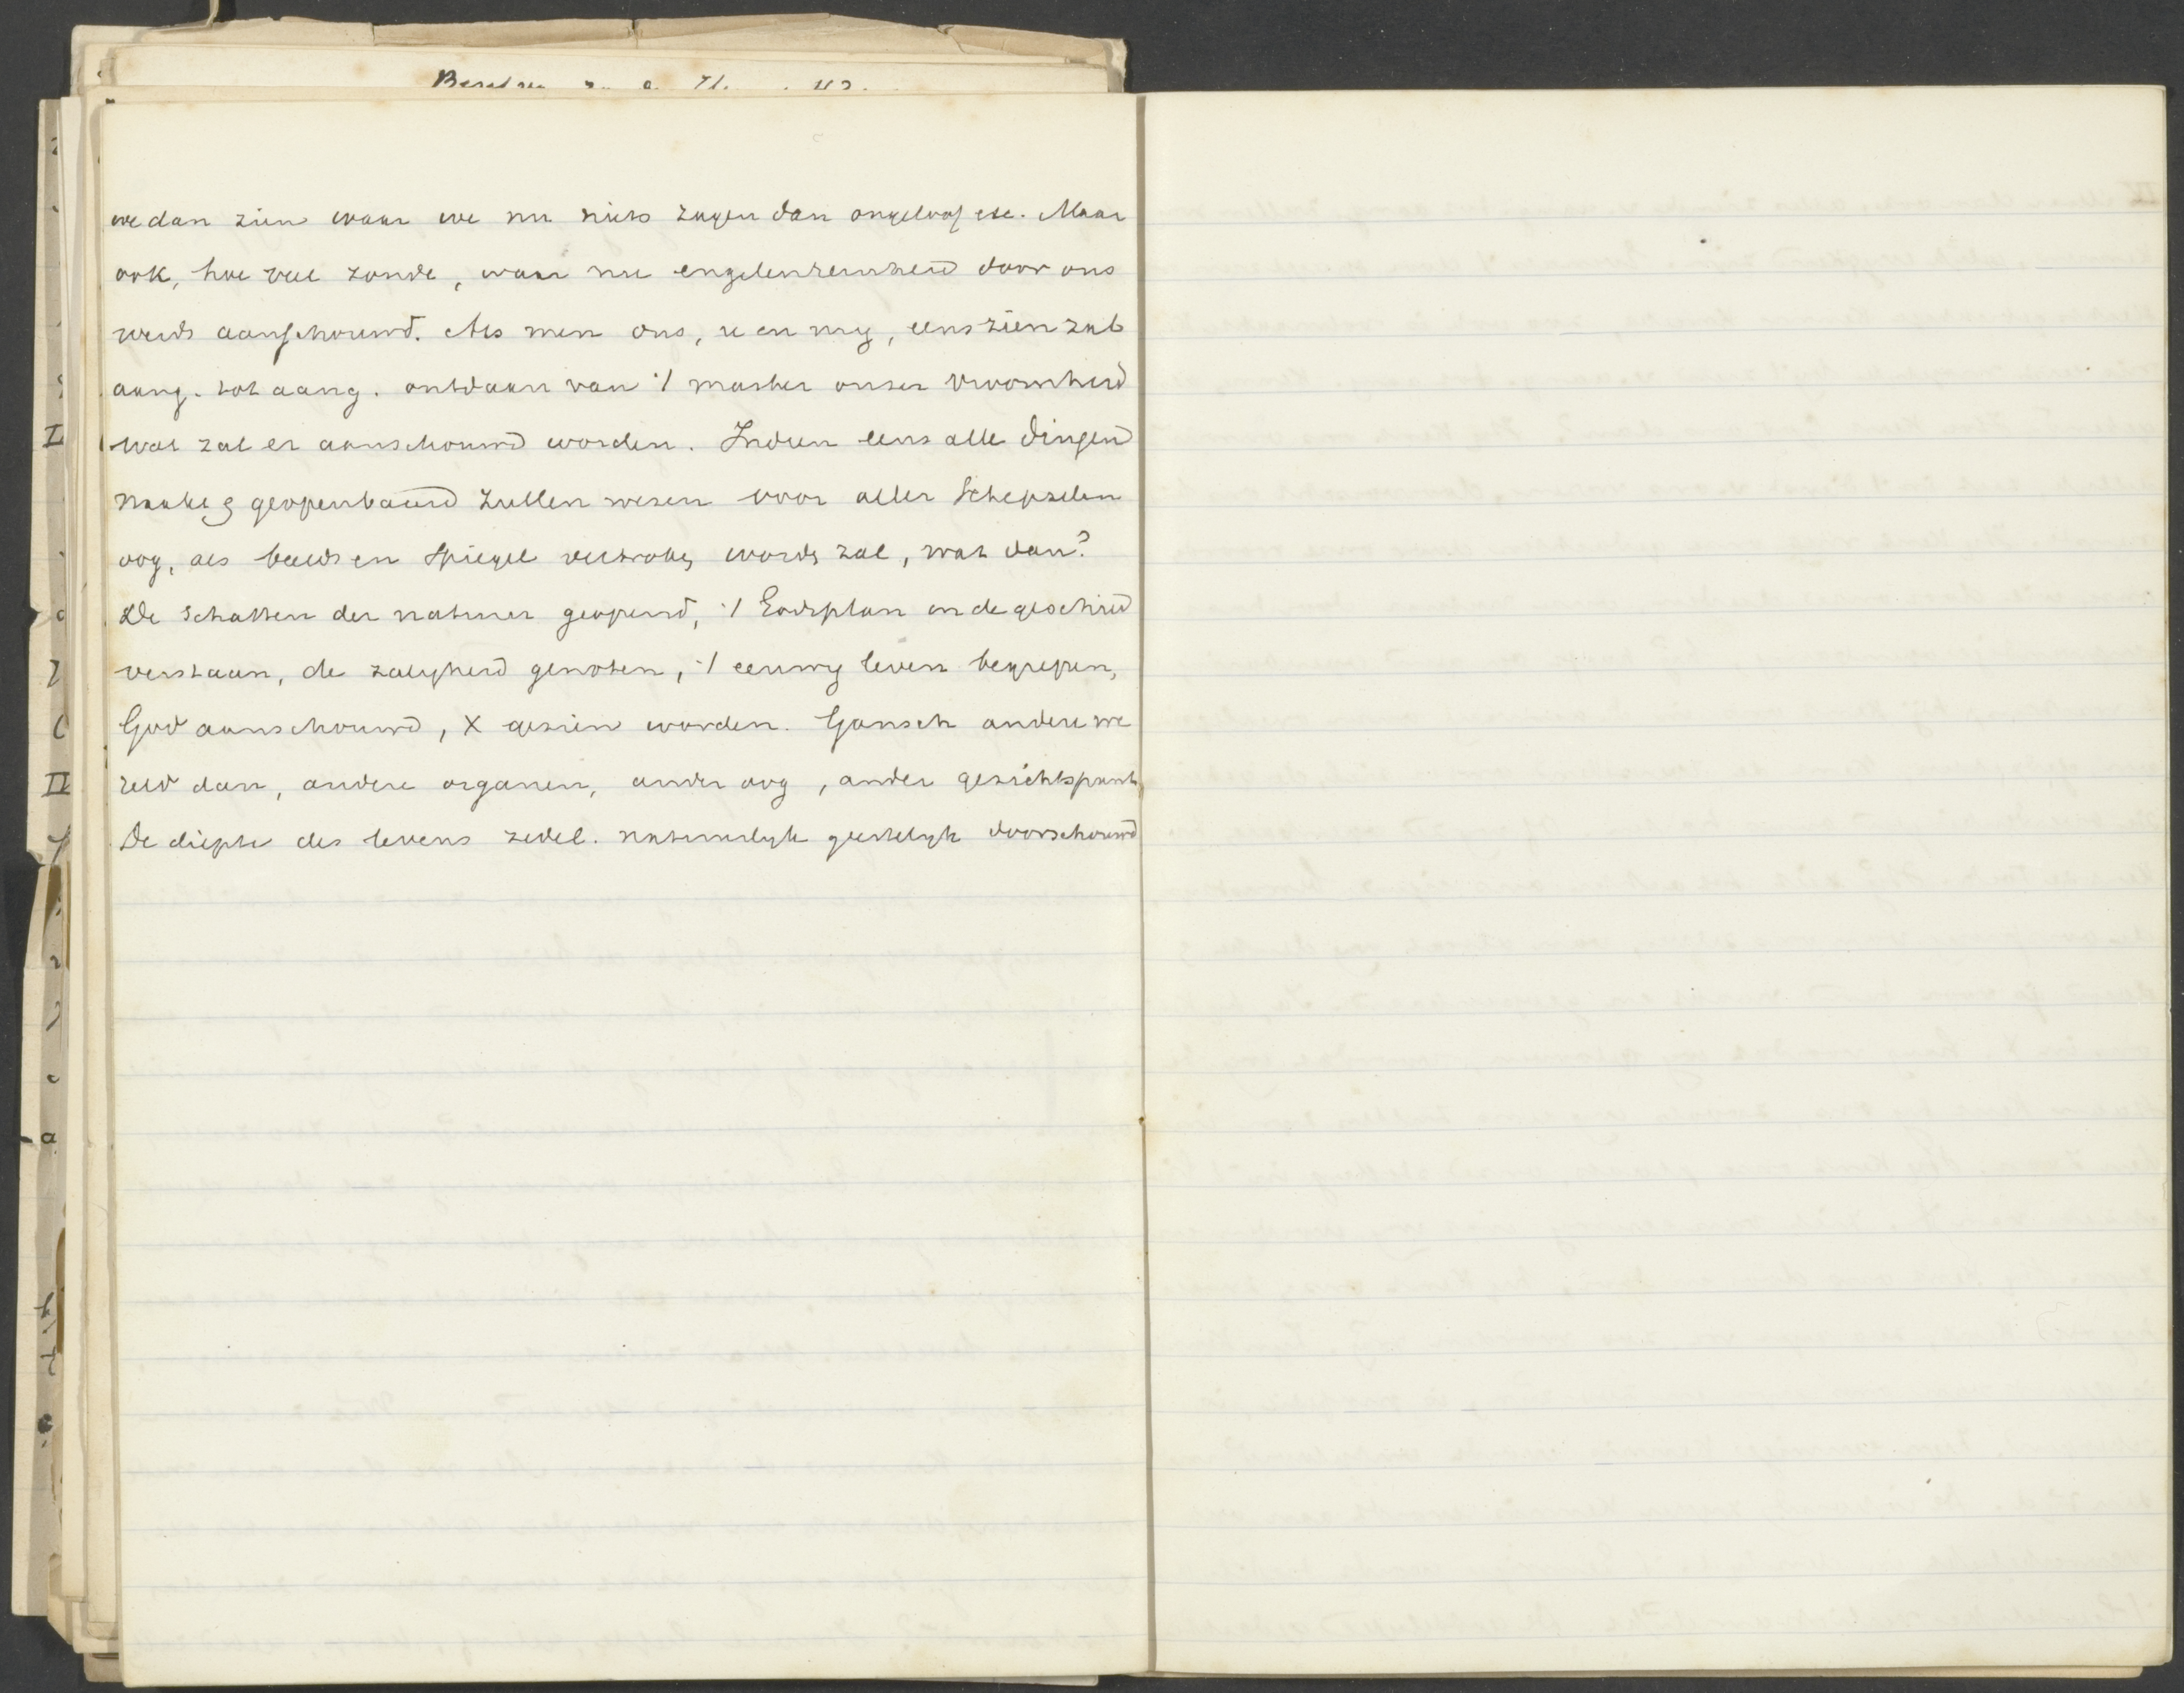 we dan zien waar we nu niets zagen dan ongeloof etc. Maar
ook, hoe veel zonde, waar nu engelenreinheid door ons
werd aanschouwd. Als men ons, u en my, eens zien zal
aang. tot aang. ontdaan van 't masker onzer vroomheid
wat zal er aanschouwd worden. Indien eens alle dingen
naakt & geopenbaard zullen wezen voor aller schepselen
oog, als beeld en spiegel verbroken worden zal, wat dan?
De schatten der natuur geopend, 't Godsplan in de geschied
verstaan, de zaligheid genoten, 't eeuwig leven begrepen,
God aanschouwd, X gezien worden. Gansch andere we
reld dan, andere organen, ander oog, ander gezichtspunt
De diepte des levens zedel. natuurlyk geestelyk doorschouwd